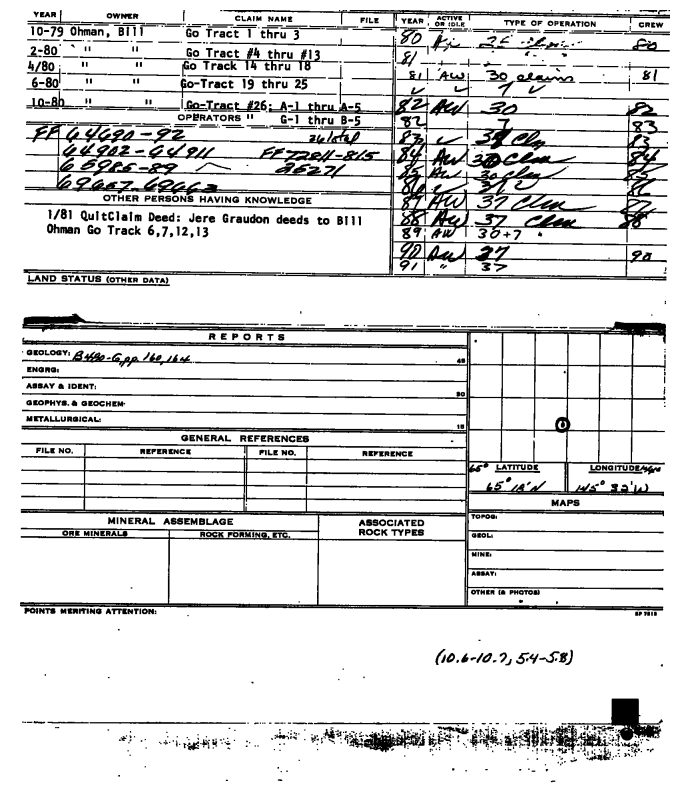 YEAR OWNER CLAIM NAME FILE YEAR ACTIVE OR IDLE TYPE OF OPERATION CREW
10-79 Ohman, Bill Go Tract 1 thru 3
2-80 " " Go Tract #4 thru #13
4/80 Go Track 14 thru 18
6-80 " " Go-Tract 19 thru 25
10-80 " " Go-Tract #26; A-1 thru A-5
OPERATORS " G-1 thru B-5
FF 64690-92 26 total
64902-64911 FF 72811-815
65985-89 25271
69657-69663
OTHER PERSONS HAVING KNOWLEDGE
1/81 QuitClaim Deed: Jere Graudon deeds to Bill
Ohman Go Track 6,7,12,13
80 80
81
81 AW 30 claims 81
82 AW 30 82
82 7 83
83 83
84 AW 84
85 AW 30 Clm
86
87 AW 37 Clm
88 AW 37 Clm 88
89 AW 30+7
90 AW 37 90
91 " 37
LAND STATUS (OTHER DATA)
REPORTS
GEOLOGY: pp. 160, 164 45
ENGRG:
ASSAY & IDENT: 30
GEOPHYS. & GEOCHEM
METALLURGICAL: 15
GENERAL REFERENCES
FILE NO. REFERENCE FILE NO. REFERENCE
65° LATITUDE LONGITUDE
65° 18'N 145° 32'W
MAPS
TOPOG:
GEOL:
MINE:
ASSAY:
OTHER (& PHOTOS)
MINERAL ASSEMBLAGE ASSOCIATED ROCK TYPES
ORE MINERALS ROCK FORMING, ETC.
POINTS MERITING ATTENTION:
(10.6-10.7, 5.4-5.8)